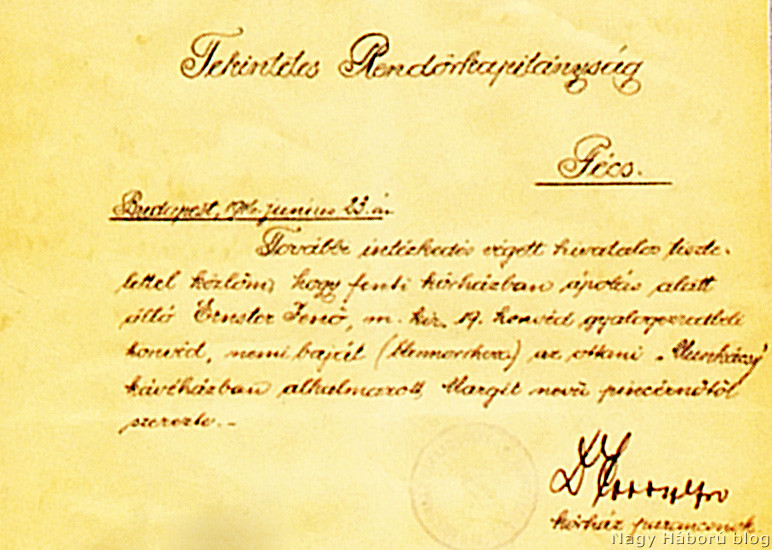 Tekintetes Rendőrkapitányság
Pécs.
Budapest, 1916. junius 23.án.
További intézkedés végett hivatalos tiszte-
lettel közlöm, hogy fenti kórházban ápolás alatt
álló Ernster Jenő, m. kir. 19. honvéd gyalogezredbeli
honvéd, nemi baját (blennorrhoea) az ottani „Munkácsy"
kávéházban alkalmazott, Margit nevű pincérnőtől
szerezte.-
Dr
kórház parancsnok.
Nagy Háború blog